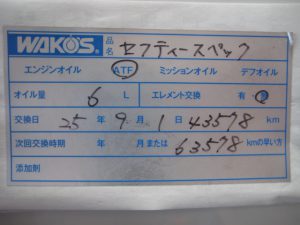 WAKO'S 品名 セフティースペック
エンジンオイル ATF ミッションオイル デフオイル
オイル量 6 L エレメント交換 有 無
交換日 25 年 9 月 1 日 43578 km
次回交換時期 年 月 または 63578 kmの早い方
添加剤